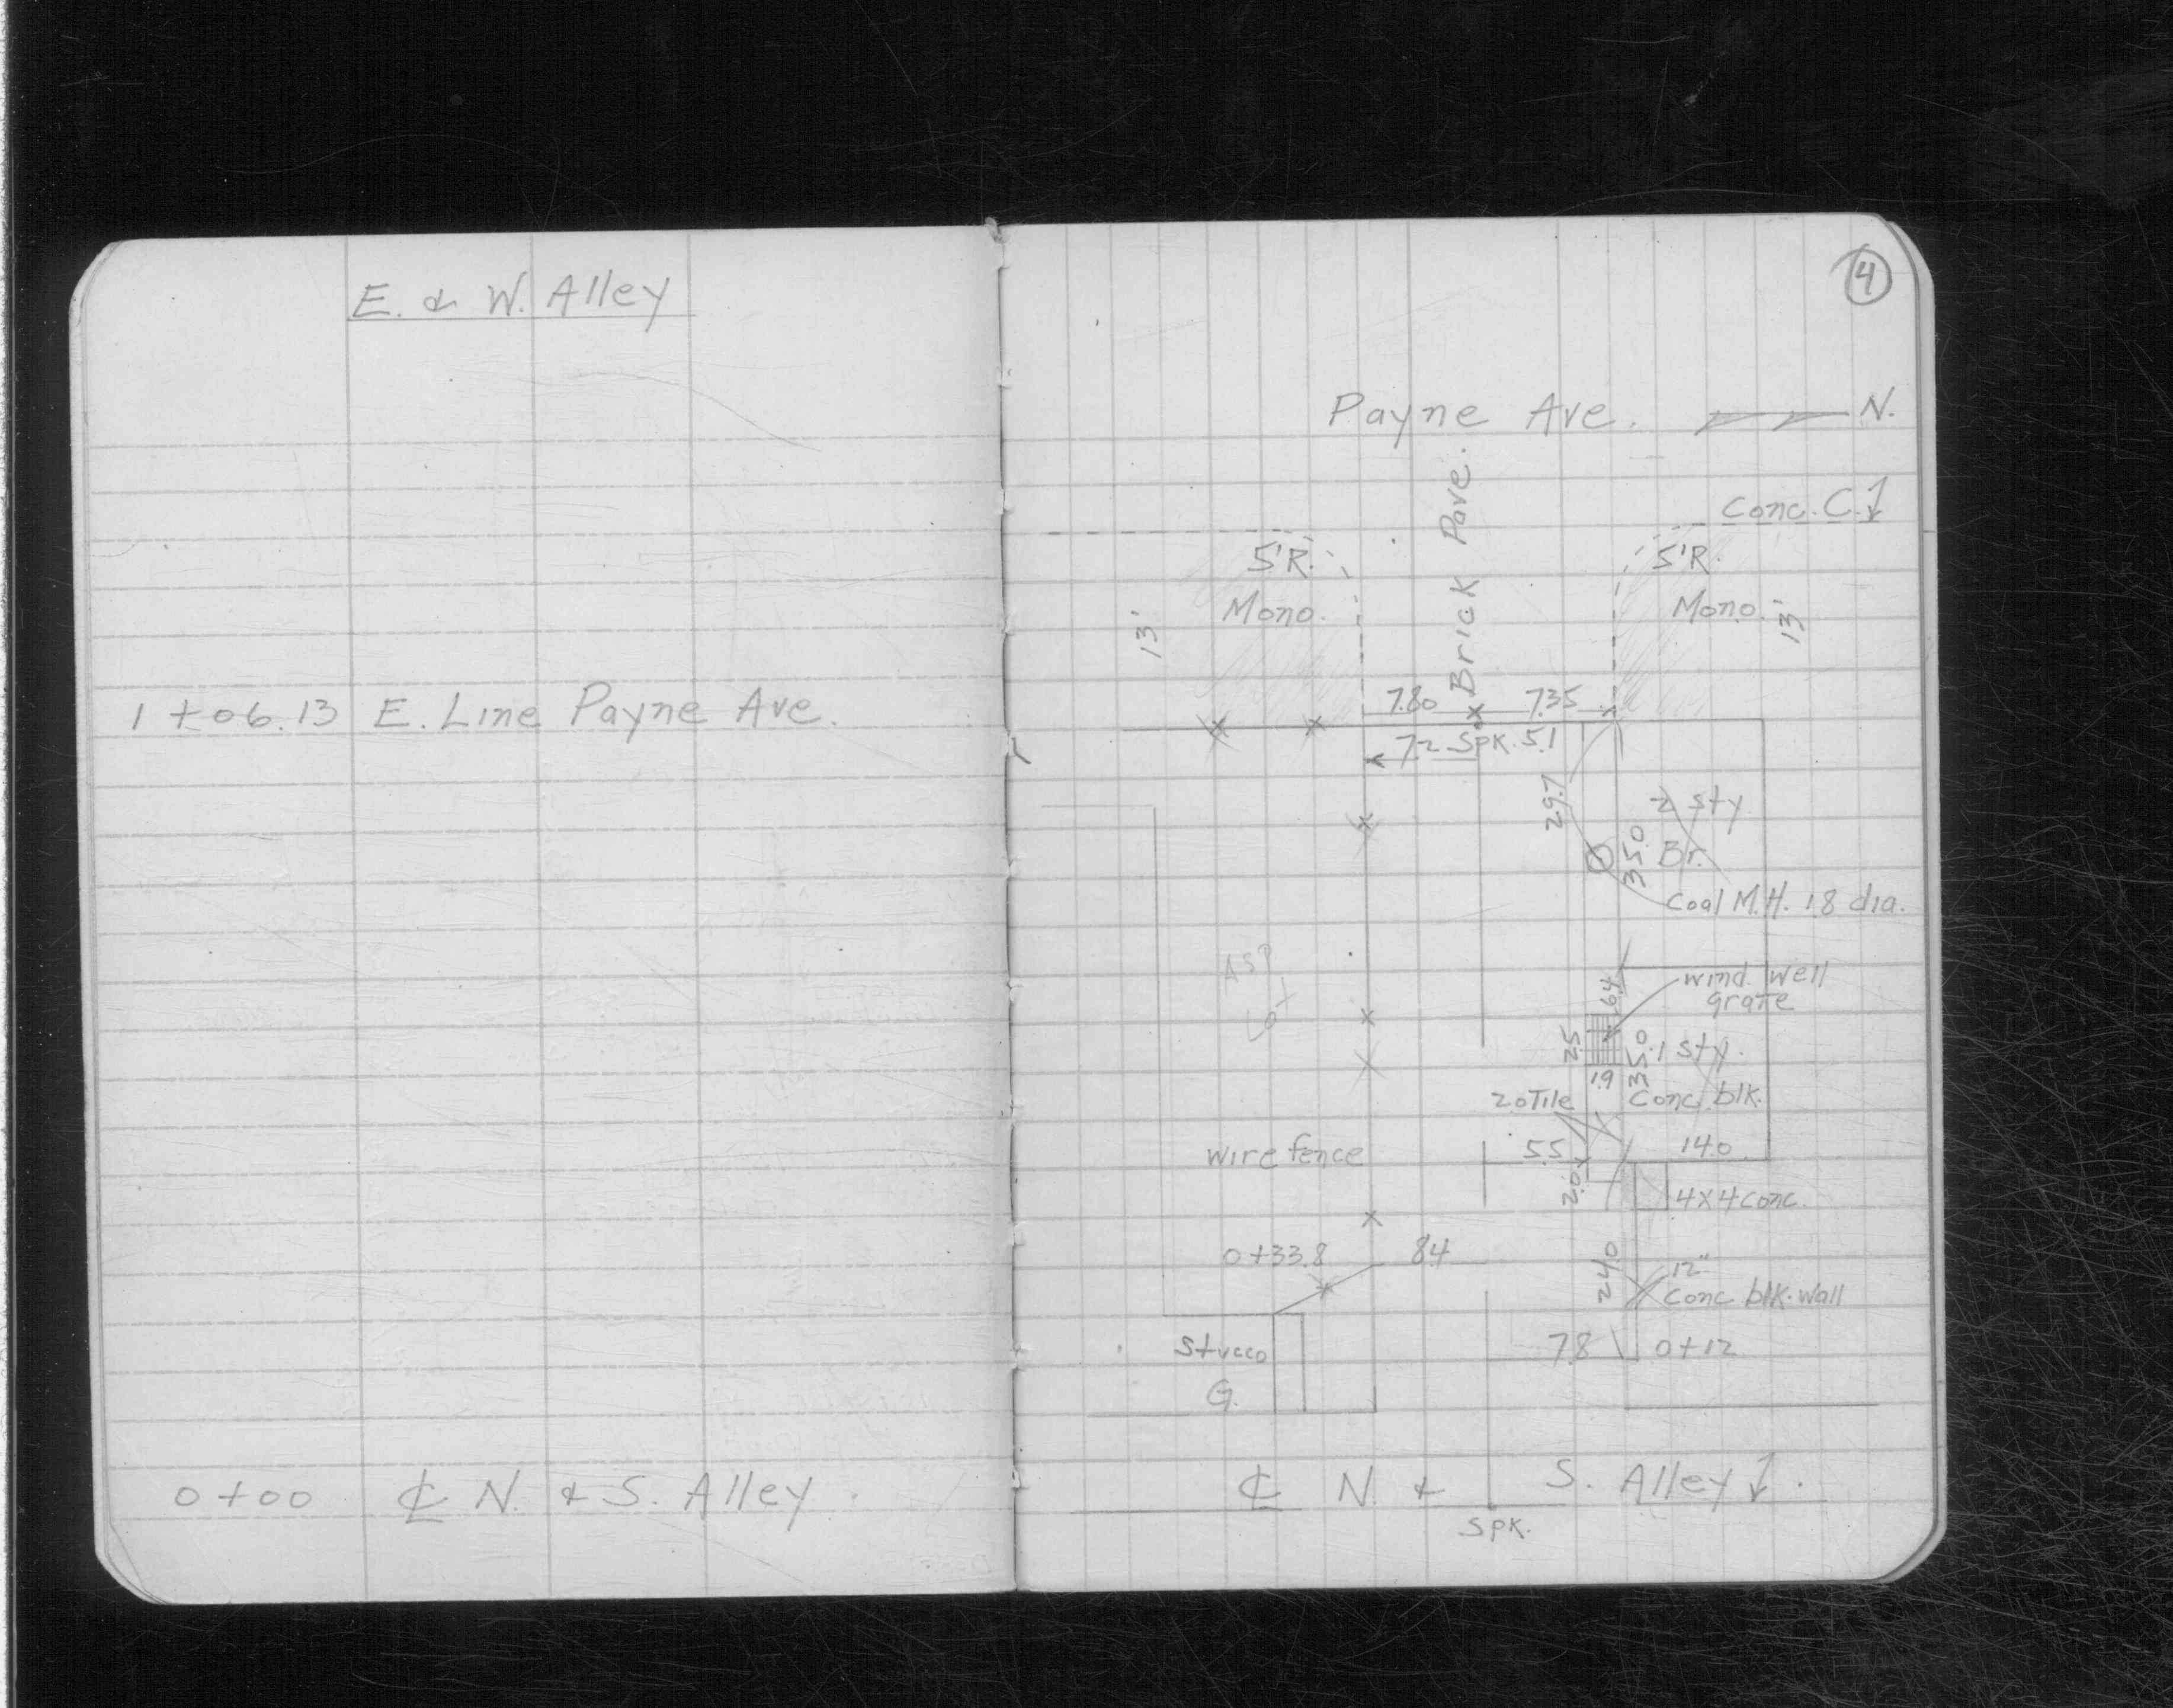 E. & W. Alley
1+06.13 E. Line Payne Ave.
0+00 ℄ N. & S. Alley.
4
Payne Ave. N.
Brick Pave.
Conc. C.
5'R. 5'R.
Mono. Mono.
13' 13'
7.80 7.35
7.2 Spk. 5.1
29.7
2 sty.
Br.
35.0
Coal M.H. 1.8 dia.
ASP
Lot
6.4
wind. well
grate
2.5
35.0
1 sty.
1.9
20 Tile Conc. blk.
wire fence 5.5 14.0
2.0
4x4 conc.
0+33.8 8.4
24.0
12"
conc. blk. wall
Stucco 7.8 0+12
G.
℄ N. & S. Alley.
Spk.